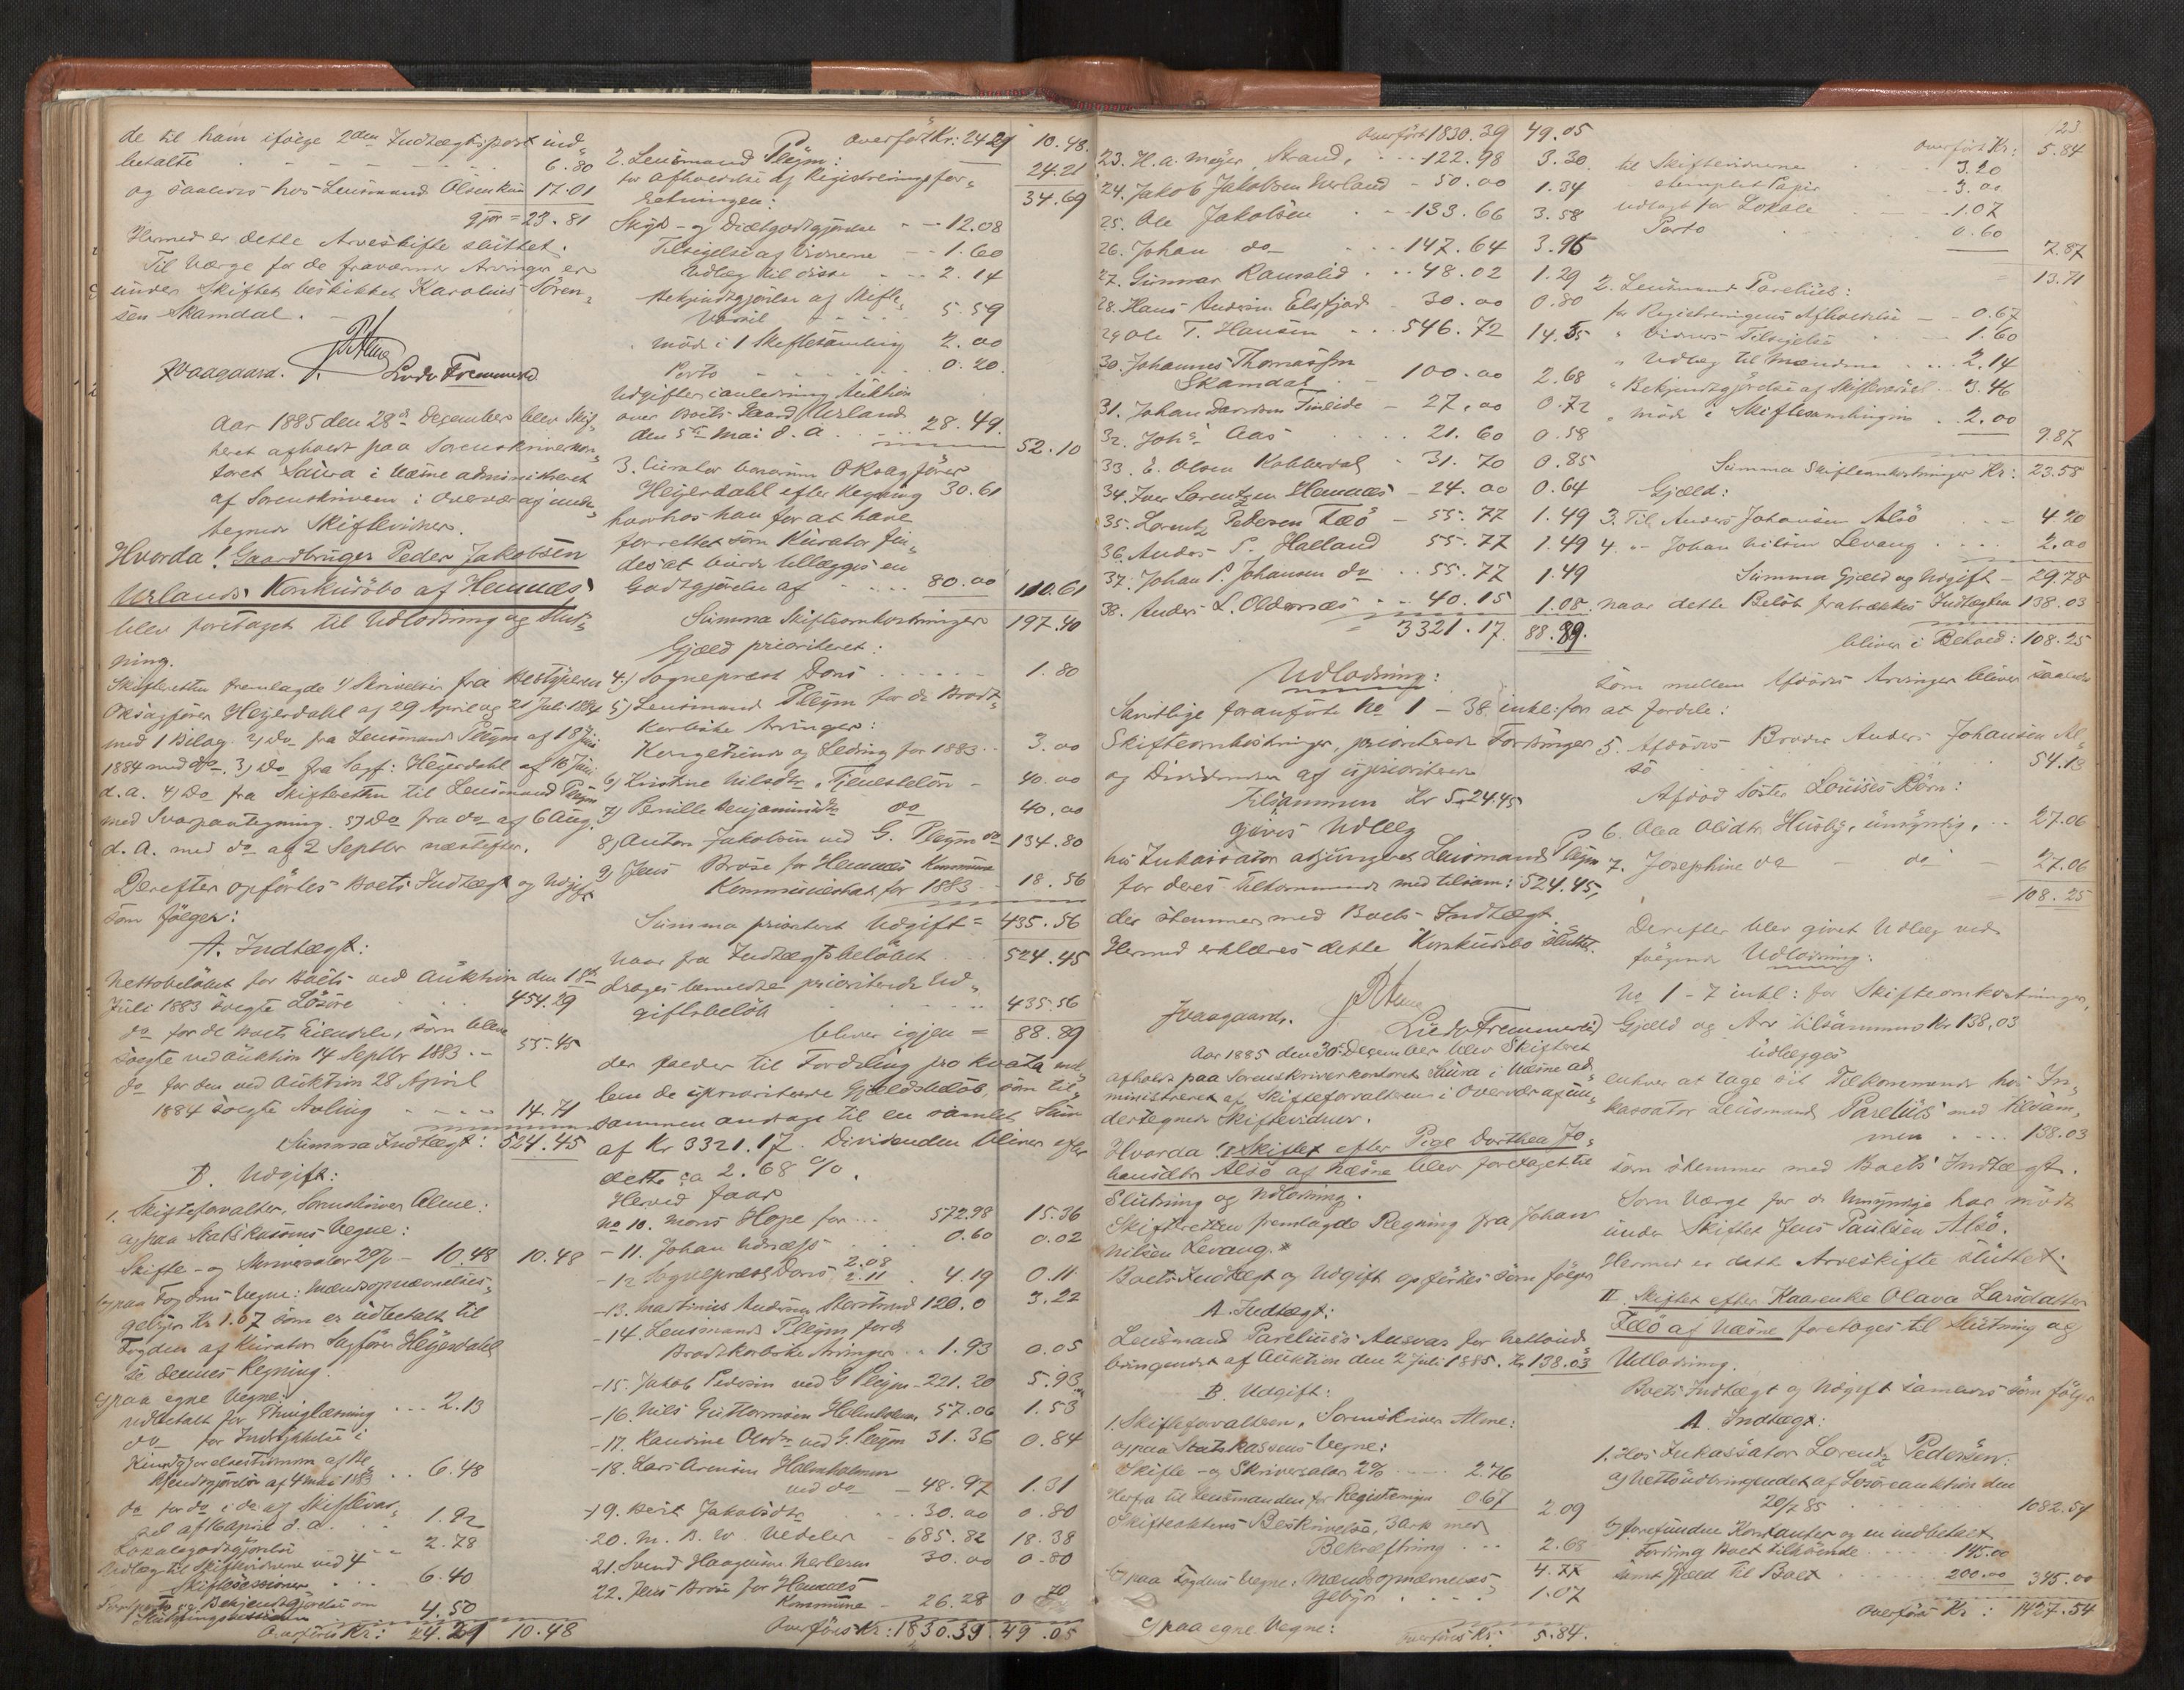 de til ham ifølge 2den Indtægtspost ind-
betalte 6.80
og saaledes hos Lensmand Olsen kun 17.01
gjør = 23.81
Hermed er dette Arveskifte sluttet.
Til Værge for de fraværende Arvinger er
under Skiftet beskikket Karolius Søren-
sen Skamdal.
Lude Fremmerlid
Aar 1885 den 28de Dezember blev Skif-
teret afholdt paa Sorenskriverkon-
toret Saura i Næsne administreret
af Sorenskriveren i Overvær af under-
tegnede Skiftevidner.
Hvorda! Gaardbruger Peder Jakobsen
Urlands Konkursbo af Hemnæs
blev foretaget til Udlodning og Slut-
ning.
Skifteretten fremlagde 1) Skrivelser fra Bestyreren
Oksagfører Heyerdahl af 29 April og 21 Juli 1884
med 1 Bilag. 2) Do fra Lensmand Pleym af 18 Juni
1884 med do. 3) Do fra Sagf: Heyerdahl af 16 Juni
d.A. 4) Do fra Skifteretten til Lensmand Pleym
med Svarpaategning. 5) Do fra do af 6 Aug.
d.A. med do af 2 Septbr næstefter.
Derefter opførtes Boets Indtægt og Udgift
som følger:
A. Indtægt:
Nettobeløbet for Boets ved Auktion den 18de
Juli 1883 solgte Løsøre 454.29
do for de Boets Eiendele, som blev
solgte ved Auktion 14 Septbr 1883 55.45
do for den ved Auktion 28 April
1884 solgte Avling 14.71
Summa Indtægt: 524.45
B. Udgift:
1. Skifteforvalter, Sorenskriver Alme:
a) paa Statskassens Vegne:
Skifte- og Skriversalar 2% 10.48 10.48
b) paa Fogdens Vegne: Mændsopnævnelses-
gebyr Kr 1.67 som er udbetalt til
Fogden af Kurator Sagfører Heyerdahl
se dennes Regning.
c) paa egne Vegne:
udbetalt for Thinglæsning 2.13
do for Indrykkelse i
Kundgjørelsestidende af Be-
kjendtgjørelse af 4 Mai 1883 6.48
do for do i do af Skiftevar-
sel af 16 April d.A. 1.92
Lokalegodtgjørelse 2.78
Udlæg til Skiftevidnerne ved 4
Skiftesessioner 6.40
Brevporto og Bekjendtgjørelse om
Slutningssession 4.50
Overføres Kr: 24.21 10.48
Overført Kr: 24.21 10.48
2. Lensmand Pleym: 24.21
for Afholdelse af Registreringsfor- 34.69
retningen:
Skyds- og Diætgodtgjørelse 12.08
Tilsigelse af Vidnerne 1.60
Udlæg til disse 2.14
Bekjendtgjørelse af Skifte-
varsel 5.59
Møde i 1 Skiftesamling 2.00
Porto 0.20
Udgifter i anledning Auktion
over Boets Gaard Urland
den 5te Mai d.A. 28.49
52.10
3. Curator bonorum Oksagfører
Heyerdahl efter Regning 30.61
hvorhos han for at have
forrettet som Kurator fin-
des at burde tillægges en
Godtgjørelse af 80.00 110.61
Summa Skifteomkostninger 197.40
Gjæld prioriteret:
4) Sogneprest Dons 1.80
5) Lensmand Pleym for de Brodt-
korbske Arvinger:
Kongetiende og Leding for 1883 3.00
6) Kristine Nilsdtr. Tjenesteløn 40.00
7) Pernille Benjaminsdtr do 40.00
8) Anton Jakobsen ved G. Pleym do 134.80
9) Jens Brose for Hemnæs Kommune
Kommuneskat for 1883 18.56
Summa prioriteret Udgift = 435.56
Naar fra Indtægtsbeløbet 524.45
drages bemeldte prioriterede Ud-
giftsbeløb 435.56
bliver igjen = 88.89
der falder til Fordeling pro kvota mel-
lem de uprioriterede Gjældsbeløb, som til-
sammen andrage til en samlet Sum
af Kr 3321.17. Dividenden bliver efter
dette ca 2.68 %.
Herved faar
No 10. Mons Hope for 572.98 15.36
- 11. Johan 0.60 0.02
- 12. Sogneprest Dons 2.08 2.11 4.19 0.11
- 13. Martinius Andersen Storstrand 120.0 3.22
- 14. Lensmand Pleym for de
Brodtkorbske Arvinger 1.93 0.05
- 15. Jakob Pedersen ved G Pleym 221.20 5.93
- 16. Nils Guttormsen Holmholmen 57.06 1.53
- 17. Kaudine Olsdtr ved G. Pleym 31.36 0.84
- 18. Lars Arensen Holmholmen
ved do 48.97 1.31
- 19. Berit Jakobsdtr 30.00 0.80
- 20. M. B. W. Vedeler 685.82 18.38
21. Svend Haagensen 30.00 0.80
22. Jens Brose for Hemnæs
Kommune 26.28 0.70
Overføres Kr: 1830.39. 49.05
123
Overført 1830.39 49.05
23. H. A. Meyer, Strand 122.98 3.30
24. Jakob Jakobsen Urland 50.00 1.34
25. Ole Jakobsen 133.66 3.58
26. Johan do 147.64 3.95
27. Gunnar Rausalid 48.02 1.29
28. Hans Andersen Elsfjord 30.00 0.80
29. Ole T. Hansen 546.72 14.65
30. Johannes Thomassen
Skamdal 100.00 2.68
31. Johan Davidsen Fineide 27.00 0.72
32. Johs Aas 21.60 0.58
33. E. Olsen Kobberdal 31.70 0.85
34. Iver Lorentzen Hemnæs 24.00 0.64
35. Lorentz Pedersen Fælø 55.77 1.49
36. Anders P. Halland 55.77 1.49
37. Johan P. Johansen do 55.77 1.49
38. Anders L. Oldernæs 40.15 1.08
= 3321.17. 88.89.
Udlodning:
Samtlige foranførte No 1 - 38 inkl: for
Skifteomkostninger, prioriterede Fordringer
og Dividenden af uprioriterede
Tilsammen Kr 524.45
gives Udlæg
hos Inkassator adjungeret Lensmand Pleym
for deres Tilkommende med tilsam: 524.45,
der stemmer med Boets Indtægt.
Hermed erklæres dette Konkursbo sluttet.
Lude Fremmerlid
Aar 1885 den 30 December blev Skifteret
afholdt paa Sorenskriverkontoret Saura i Næsne ad-
ministreret af Skifteforvalteren i Overvær af un-
dertegnede Skiftevidner.
Hvorda I Skiftet efter Pige Dorthea Jo-
hansdtr Alsø af Næsne blev foretaget til
Slutning og Udlodning.
Skifteretten fremlagde Regning fra Johan
Nilsen Levang.
Boets Indtægt og Udgift opførtes som følger
A. Indtægt:
Lensmand Parelius's Ansvar for Nettoud-
bringendet af Auktion den 2 Juli 1885. Kr 138.03
B. Udgift:
1. Skifteforvalteren, Sorenskriver Alme:
a) paa Statskassens Vegne:
Skifte- og Skriversalar 2% 2.76
Herfra til Lensmanden for Registreringen 0.67 2.09
Skifteaktens Beskrivelse, 3 ark med
Bekræftning 2.68
4.77
b) paa Fogdens Vegne: Mændsopnævnelses-
gebyr 1.07
c) paa egne Vegne:
Overføres Kr: 5.84.
Overført Kr: 5.84
til Skiftevidnerne 3.20
stemplet Papir 3.00
Udlagt for Lokale 1.07
Porto 0.60
7.87
= 13.71
2. Lensmand Parelius:
for Registreringens Afholdelse 0.67
" Vidners Tilsigelse 1.60
" Udlæg til Mændene 2.14
" Bekjendtgjørelse af Skiftevarsel 3.46
" Møde i Skiftesamlingen 2.00
9.87
Summa Skifteomkostninger Kr: 23.58
Gjæld:
3. Til Anders Johansen Alsø 4.20
4. " Johan Nilsen Levang 2.00
Summa Gjæld og Udgift 29.78
naar dette Beløb fratrækkes Indtægten 138.03
bliver i Behold: 108.25
som mellem Afdødes Arvinger bliver saaledes
at fordele:
5. Afdødes Broder Anders Johansen Al-
sø 54.13
Afdød Søster Louises Børn:
6. Olea Olsdtr Husby, umyndig, 27.06
7. Josephine do - do - 27.06
= 108.25
Derefter blev givet Udlæg ved
følgende Udlodning:
No 1 - 7 inkl: for Skifteomkostninger,
Gjæld og Arv tilsammen Kr 138,03
udlægges
enhver at tage sit Tilkommende hos In-
kassator Lensmand Parelius med tilsam-
men 138.03
som stemmer med Boets Indtægt.
Som Værge for de Umyndige har mødt
under Skiftet Jens Paulsen Alsø.
Hermed er dette Arveskifte sluttet.
II. Skiftet efter Kaarenke Olava Larsdatter
Fælø af Næsne foretages til Slutning og
Udlodning.
Boets Indtægt og Udgift samledes som følger
A. Indtægt:
1. Hos Inkassator Lorentz Pedersen:
a) Nettoudbringendet af Løsøreauktion den
20/7 85 1082.54
b) forefunden Kontanter og en indbetalt
Fordring Boet tilhørende 145.00
samt Gjæld til Boet 200.00 345.00
Overføres Kr: 1427.54